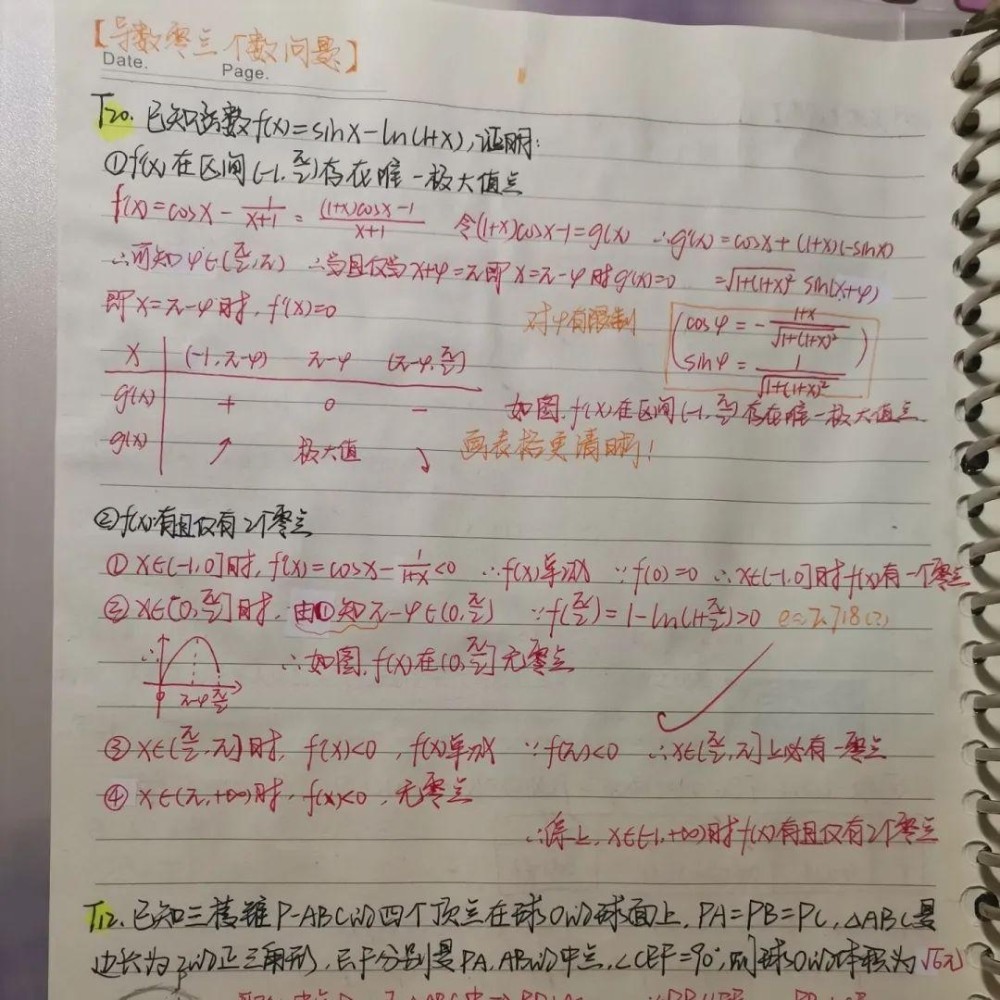 【导数零点个数问题】
Date. Page.
T20. 已知函数f(x)=sinx-ln(1+x),证明:
①f'(x)在区间(-1,π/2)存在唯一极大值点
f'(x)=cosx-1/(x+1)=((1+x)cosx-1)/(x+1) 令(1+x)cosx-1=g(x) ∴g'(x)=cosx+(1+x)(-sinx)
∴可知φ∈(π/2,π) ∴当且仅当x+φ=π即x=π-φ时g'(x)=0 =√(1+(1+x)²) sin(x+φ)
即x=π-φ时,f'(x)=0 对φ有限制 (cosφ=-(1+x)/√(1+(1+x)²)
sinφ=1/√(1+(1+x)²))
x (-1,π-φ) π-φ (π-φ,π/2)
g'(x) + 0 - 如图,f'(x)在区间(-1,π/2)存在唯一极大值点
g(x) ↗ 极大值 ↘ 画表格更清晰!
②f(x)有且仅有2个零点
①x∈(-1,0]时,f'(x)=cosx-1/(1+x)<0 ∴f(x)单减 ∵f(0)=0 ∴x∈(-1,0]时f(x)有一个零点
②x∈[0,π/2]时,由①知π-φ∈(0,π/2) ∵f(π/2)=1-ln(1+π/2)>0 e≈2.718(?)
∴ ∴如图,f(x)在(0,π/2]无零点
0 π-φ π/2
③x∈(π/2,π]时,f'(x)<0,f(x)单减 ∵f(π)<0 ∴x∈(π/2,π]上必有一零点
④x∈(π,+∞)时,f(x)<0,无零点
∴综上,x∈(-1,+∞)时f(x)有且仅有2个零点
T12.已知三棱锥P-ABC的四个顶点在球O的球面上,PA=PB=PC,△ABC是
边长为2的正三角形,E,F分别是PA,AB的中点,∠CEF=90°,则球O的体积为√6π